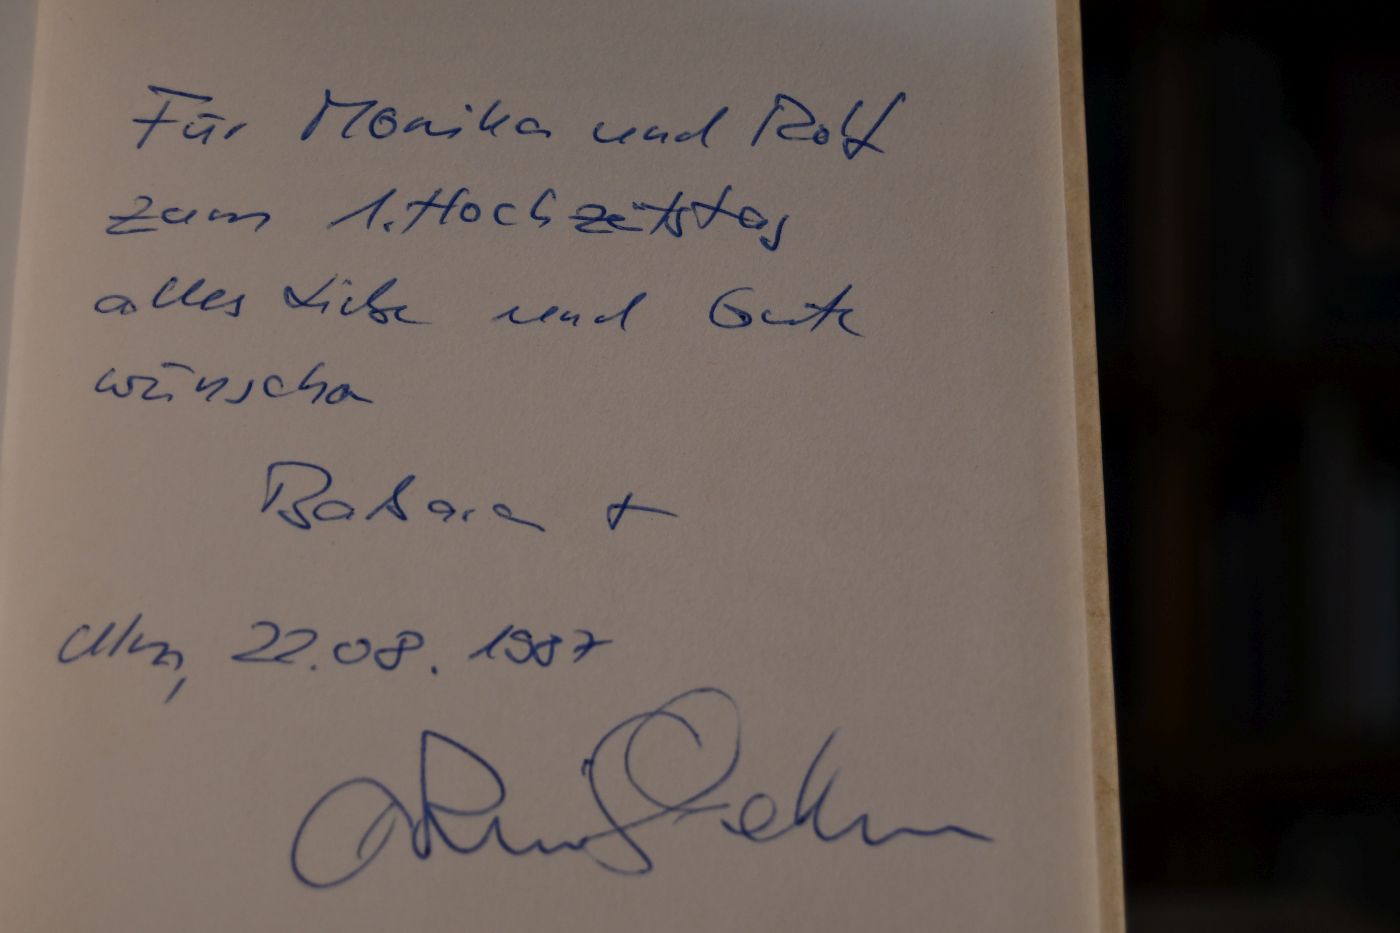 Für Monika und Rolf
zum 1. Hochzeitstag
alles Liebe und Gute
wünschen
Barbara +
22.08.1987